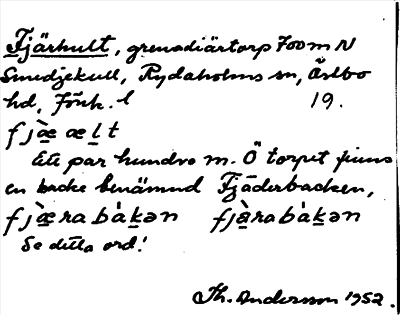 Fjärhult, grenadiärtorp 700 m N
Smedjekull, Rydaholms sn, Östbo
hd, Jönk. l 19.
fjæ̀ æl̠t
Ett par hundra m. Ö torpet finns
en backe benämnd Fjäderbacken,
fjæ̀rabàk̠ən fjàrabàk̠ən
Se detta ord!
Th. Andersson 1952.